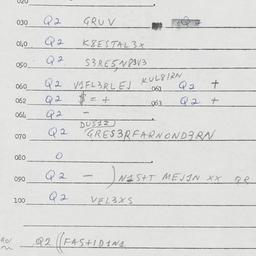 020
030 Q2 GRUV
040 Q2 K8ESTAL3X
050 Q2 S3RE5,N8V3
060 Q2 V1FL3RLEJ KUL81RN 061 Q2 +
062 Q2 $=+ 063 Q2 +
064 Q2 -
070 Q2 GRES3RFARNOND3RN
080 0
090 Q2 - ) N1S+T MEJ1N XX QR
100 Q2 VEL3XS
Q2 ((FAS+1D1N1